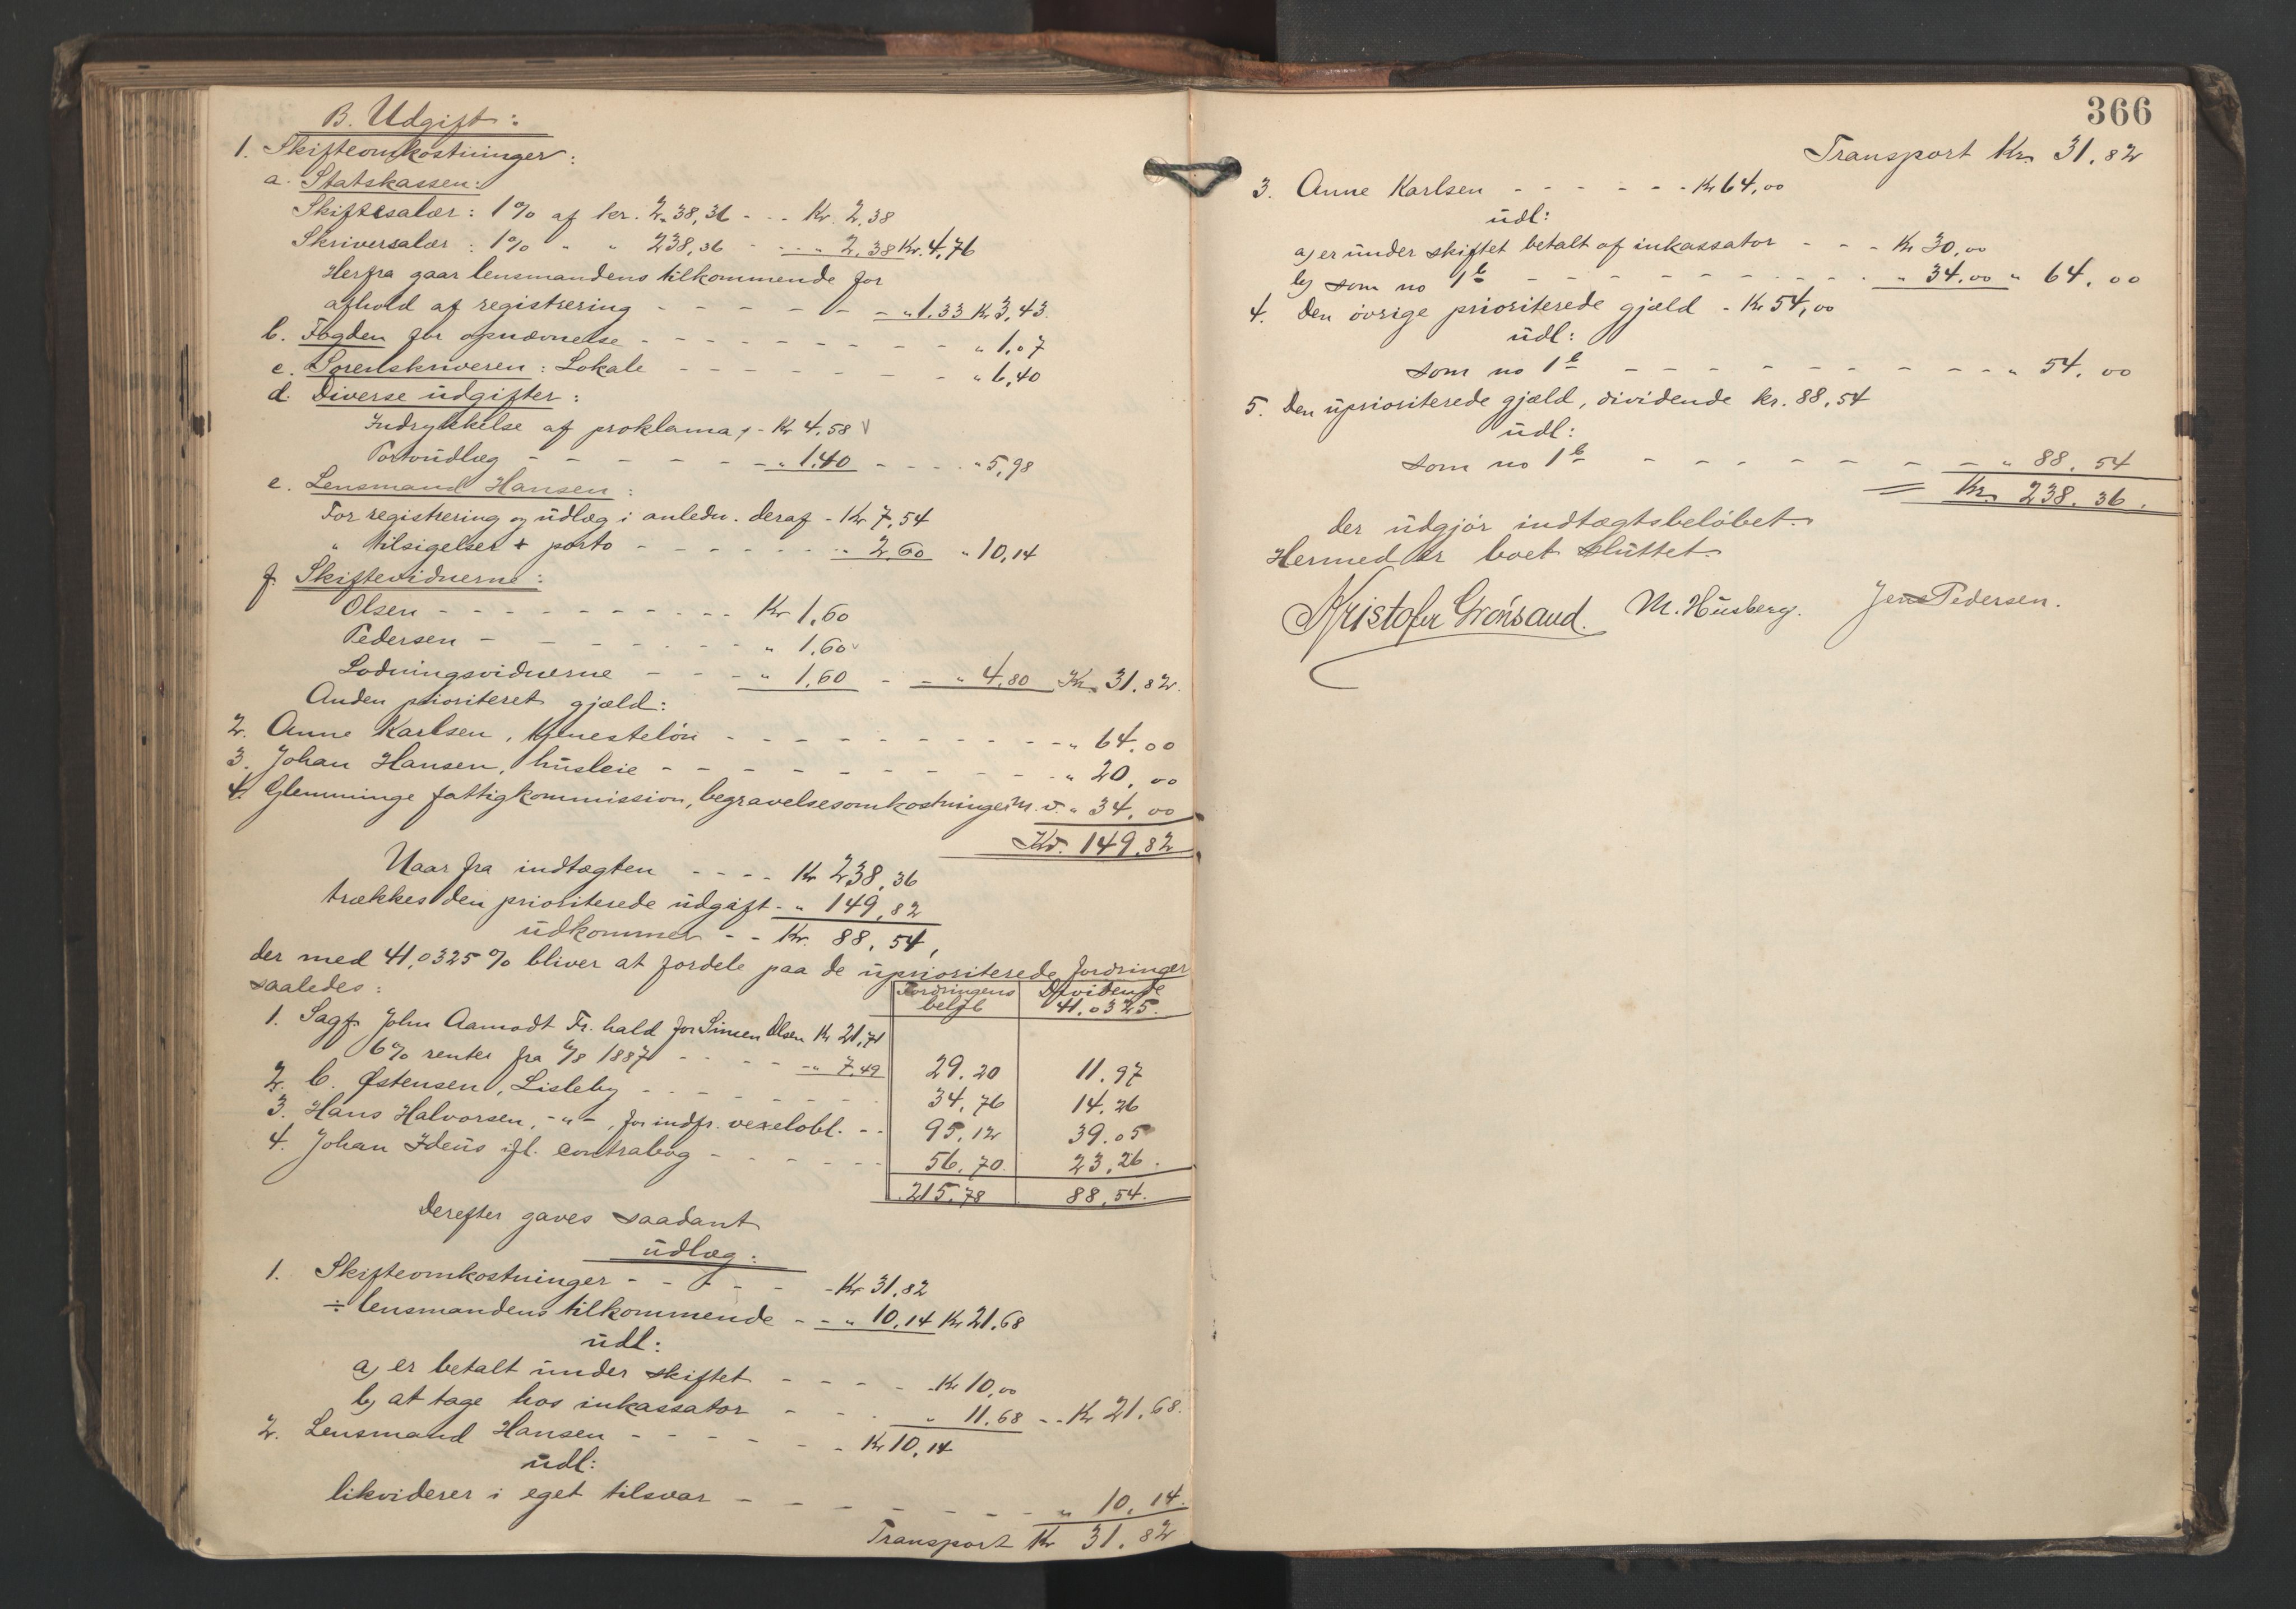 B. Udgift:
1. Skifteomkostninger:
a. Statskassen:
Skiftesalær: 1% af kr. 238,36 - - - Kr. 2,38
Skriversalær: 1% " " 238,36 - - - " 2,38 Kr. 4,76
Herfra gaar lensmandens tilkommende for
afhold af registrering - - - - - - - " 1.33 Kr 3,43.
b. Fogden for opnævnelse - - - - - - - - - " 1.07
c. Sorenskriveren: Lokale - - - - - - - " 6,40
d. Diverse udgifter:
Indrykkelse af proklama, - Kr 4,58
Portoudlæg - - - - - - - " 1.40 - - - - " 5,98
e. Lensmand Hansen:
For registrering og udlæg i anledn. deraf - Kr 7,54
" tilsigelser + porto - - - - - - - " 2,60 " 10,14
f. Skiftevidnerne:
Olsen - - - - - - - - - - Kr 1,60
Pedersen - - - - - - - " 1,60
Lodningsvidnerne - - - - " 1,60 - - " 4,80 Kr. 31.82.
Anden prioriteret gjæld:
2. Anne Karlsen, tjenesteløn - - - - - - - - - - " 64.00
3. Johan Hansen, husleie - - - - - - - - - - " 20,00
4. Glemminge fattigkommission, begravelsesomkostninger m. v. " 34,00
Kr. 149,82
Naar fra indtægten - - - - Kr 238,36
trækkes den prioriterede udgift - " 149,82
udkommer - - Kr. 88,54,
der med 41,0325% bliver at fordele paa de uprioriterede fordringer
saaledes:
Fordringens beløb
Dividende 41.0325.
1. Sagf. John Aamodt Fr. hald for Simen Olsen Kr 21,71
6% renter fra 6/8 1887 - - - - - " 7,49 29.20 11.97
2. C. Østensen, Lisleby - - - - - - - 34,76 14.26
3. Hans Halvorsen, -"-, for indfr. vexelobl. - - 95.12 39.05
4. Johan Ideus ifl. contrabog - - - - - - 56.70 23,26.
215,78 88,54.
Derefter gaves saadant
udlæg:
1. Skifteomkostninger - - - - - Kr 31.82
÷ lensmandens tilkommende - - " 10.14 Kr 21,68
udl:
a) er betalt under skiftet - - - - - Kr 10,00
b) at tage hos inkassator - - - " 11.68 - - Kr 21.68.
2. Lensmand Hansen - - - - - - - Kr 10,14
udl:
likviderer i eget tilsvar - - - - - - - " 10,14.
Transport Kr 31.82
366
Transport Kr. 31.82
3. Anne Karlsen - - - - - - - Kr 64,00
udl:
a) er under skiftet betalt af inkassator - - - Kr 30,00
b) som no 1 b - - - - - - - - - - " 34.00 " 64.00
4. Den øvrige prioriterede gjæld - Kr 54,00
udl:
som no 1 b - - - - - - - - - - - - " 54.00
5. Den uprioriterede gjæld, dividende kr. 88.54
udl:
som no 1 b - - - - - - - - " 88.54
Kr. 238.36.
der udgjør indtægtsbeløbet.
Hermed er boet sluttet.
Kristofer Grønsand. M. Husberg. Jens Pedersen.